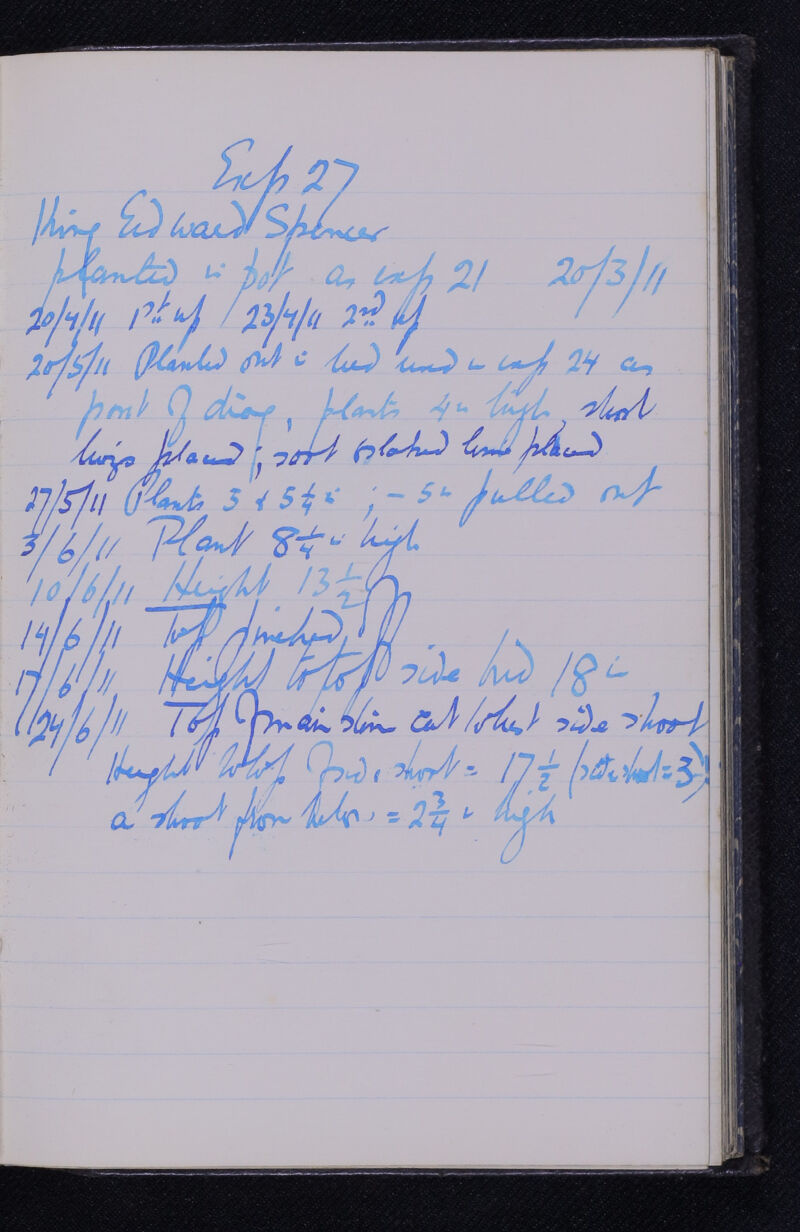 Exp 27
King Edward Spencer
planted in pot as exp 21 20/3/11
20/4/11 1st up 23/4/11 2nd up
20/5/11 Planted out in bed used in exp 24 as
part of diag, plants 4in high, short
twigs placed; soot & slaked lime placed
27/5/11 Plants 3 & 5¼in; - 5in pulled out
3/6/11 Plant 8¼in high
10/6/11 Height 13½
14/6/11 Top pinched off
17/6/11 Height to top side bud 18in
24/6/11 Top of main stem cut to best side shoot
Height to top of side shoot = 17½ (side shoot = 3)
a shoot from below = 2¾in high